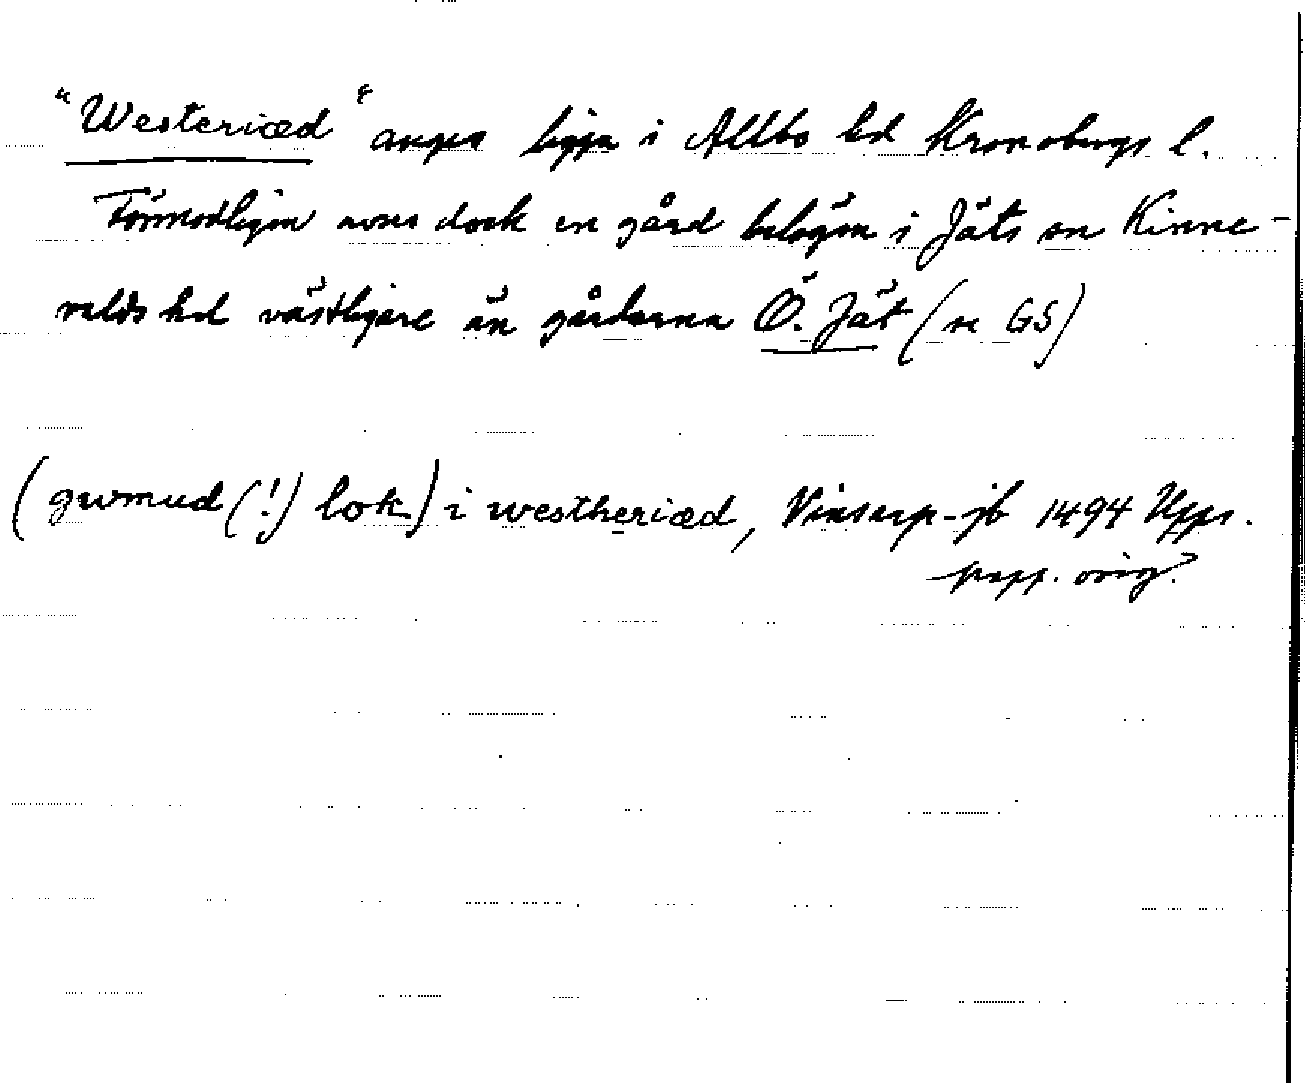 "Westeriæd" anges ligga i Allbo hd Kronobergs l.
Förmodligen avses dock en gård belägen i Jäts sn Kinne-
valds hd västligare än gårdarna Ö. Jät (se GS)
(gwmud (!) lok) i westheriæd, Vinsarp-jb 1494 Upps.
papp. orig.